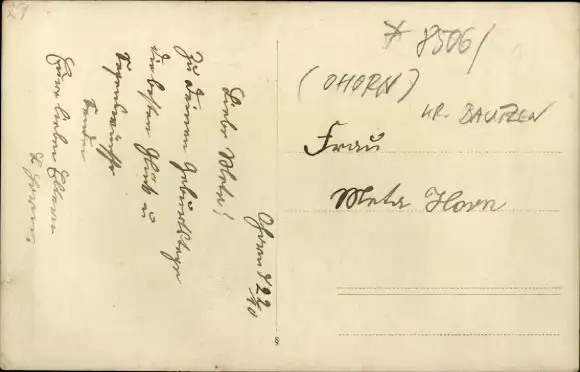 21
* 8506/
(OHORN)
KR. BAUTZEN
Frau
Meta Horn
Ohorn d 22/10
Liebe Meta!
Zu Deinem Geburtstage
die besten Glück u
Segenswünsche
senden
Deine lieben Eltern